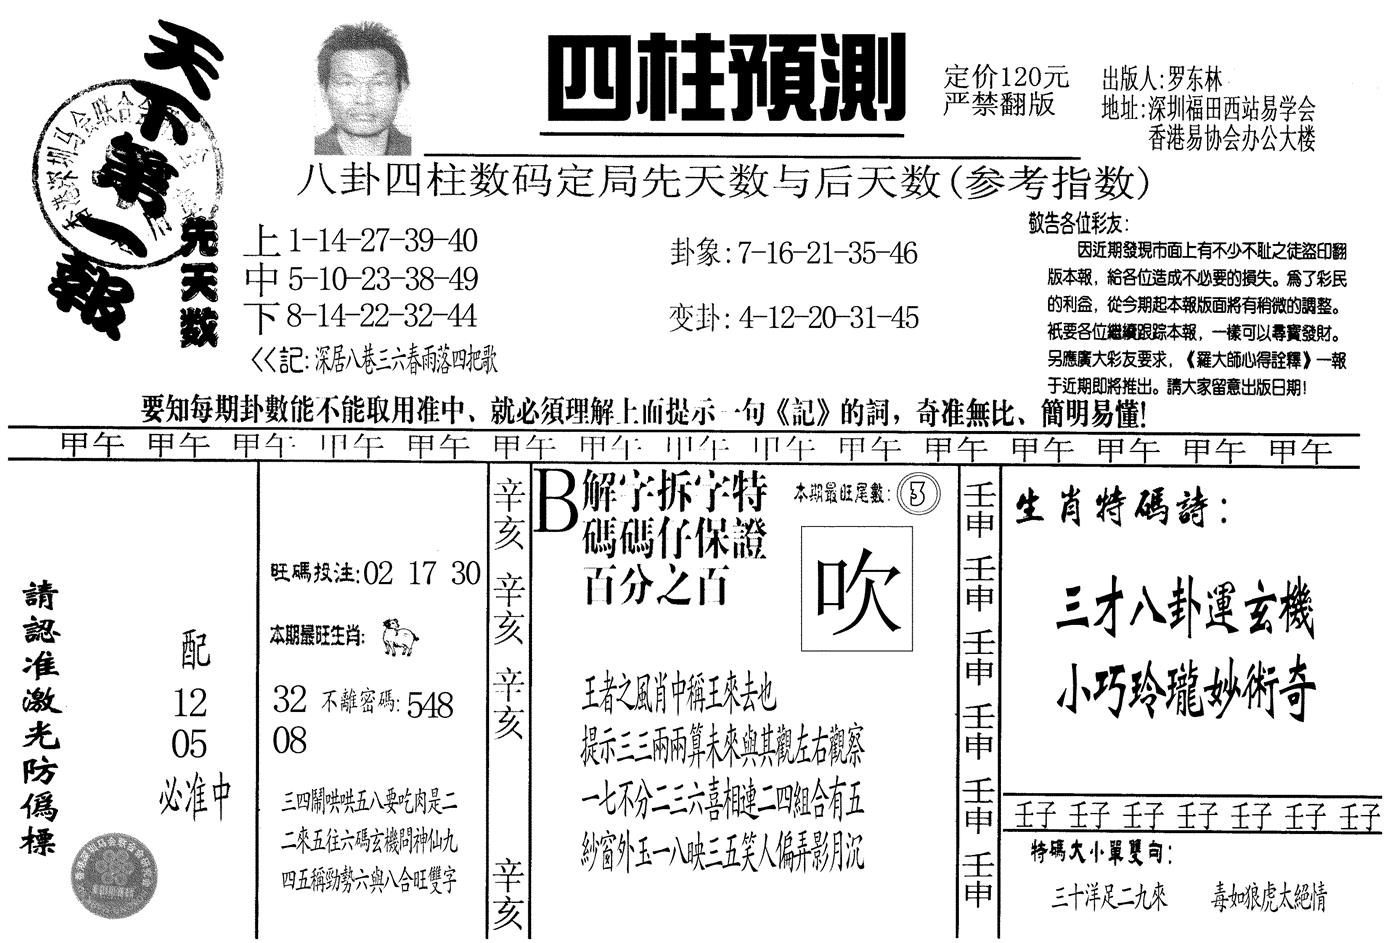 天下第一報
先天数
四柱預測
定价120元
严禁翻版
出版人:罗东林
地址:深圳福田西站易学会
香港易协会办公大楼
八卦四柱数码定局先天数与后天数(参考指数)
上 1-14-27-39-40
中 5-10-23-38-49
下 8-14-22-32-44
<<記:深居八巷三六春雨落四把歌
卦象:7-16-21-35-46
变卦:4-12-20-31-45
敬告各位彩友:
因近期發現市面上有不少不耻之徒盜印翻
版本報，給各位造成不必要的損失。爲了彩民
的利益，從今期起本報版面將有稍微的調整。
衹要各位繼續跟踪本報，一樣可以尋寶發財。
另應廣大彩友要求，《羅大師心得詮釋》一報
于近期即將推出。請大家留意出版日期!
要知每期卦數能不能取用准中、就必須理解上面提示一句《記》的詞，奇准無比、簡明易懂!
甲午 甲午 甲午 甲午 甲午 甲午 甲午 甲午 甲午 甲午 甲午 甲午 甲午 甲午 甲午
請認准激光防僞標
配
12
05
必准中
旺碼投注:02 17 30
本期最旺生肖:
32 不離密碼:548
08
三四鬧哄哄五八要吃肉是二
二來五往六碼玄機問神仙九
四五稱勁勢六與八合旺雙字
辛亥
辛亥
辛亥
辛亥
B
解字拆字特
碼碼仔保證
百分之百
本期最旺尾數:3
吹
王者之風肖中稱王來去也
提示三三兩兩算未來與其觀左右觀察
一七不分二三六喜相連二四組合有五
紗窗外玉一八映三五笑人偏弄影月沉
壬申
壬申
壬申
壬申
壬申
壬申
生肖特碼詩:
三才八卦運玄機
小巧玲瓏妙術奇
壬子 壬子 壬子 壬子 壬子 壬子 壬子
特碼大小單雙句:
三十洋足二九來 毒如狼虎太絕情